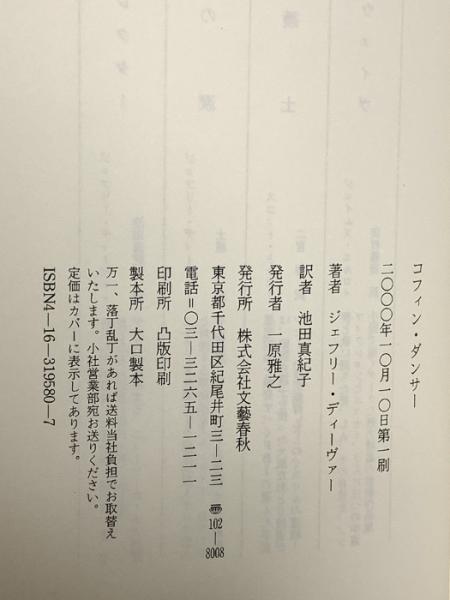 コフィン・ダンサー
二〇〇〇年一〇月一〇日第一刷
著者 ジェフリー・ディーヴァー
訳者 池田真紀子
発行者 一原雅之
発行所 株式会社文藝春秋
東京都千代田区紀尾井町三―二三 〠102―8008
電話=〇三―三二六五―一二一一
印刷所 凸版印刷
製本所 大口製本
万一、落丁乱丁があれば送料当社負担でお取替え
いたします。小社営業部宛お送りください。
定価はカバーに表示してあります。
ISBN4―16―319580―7